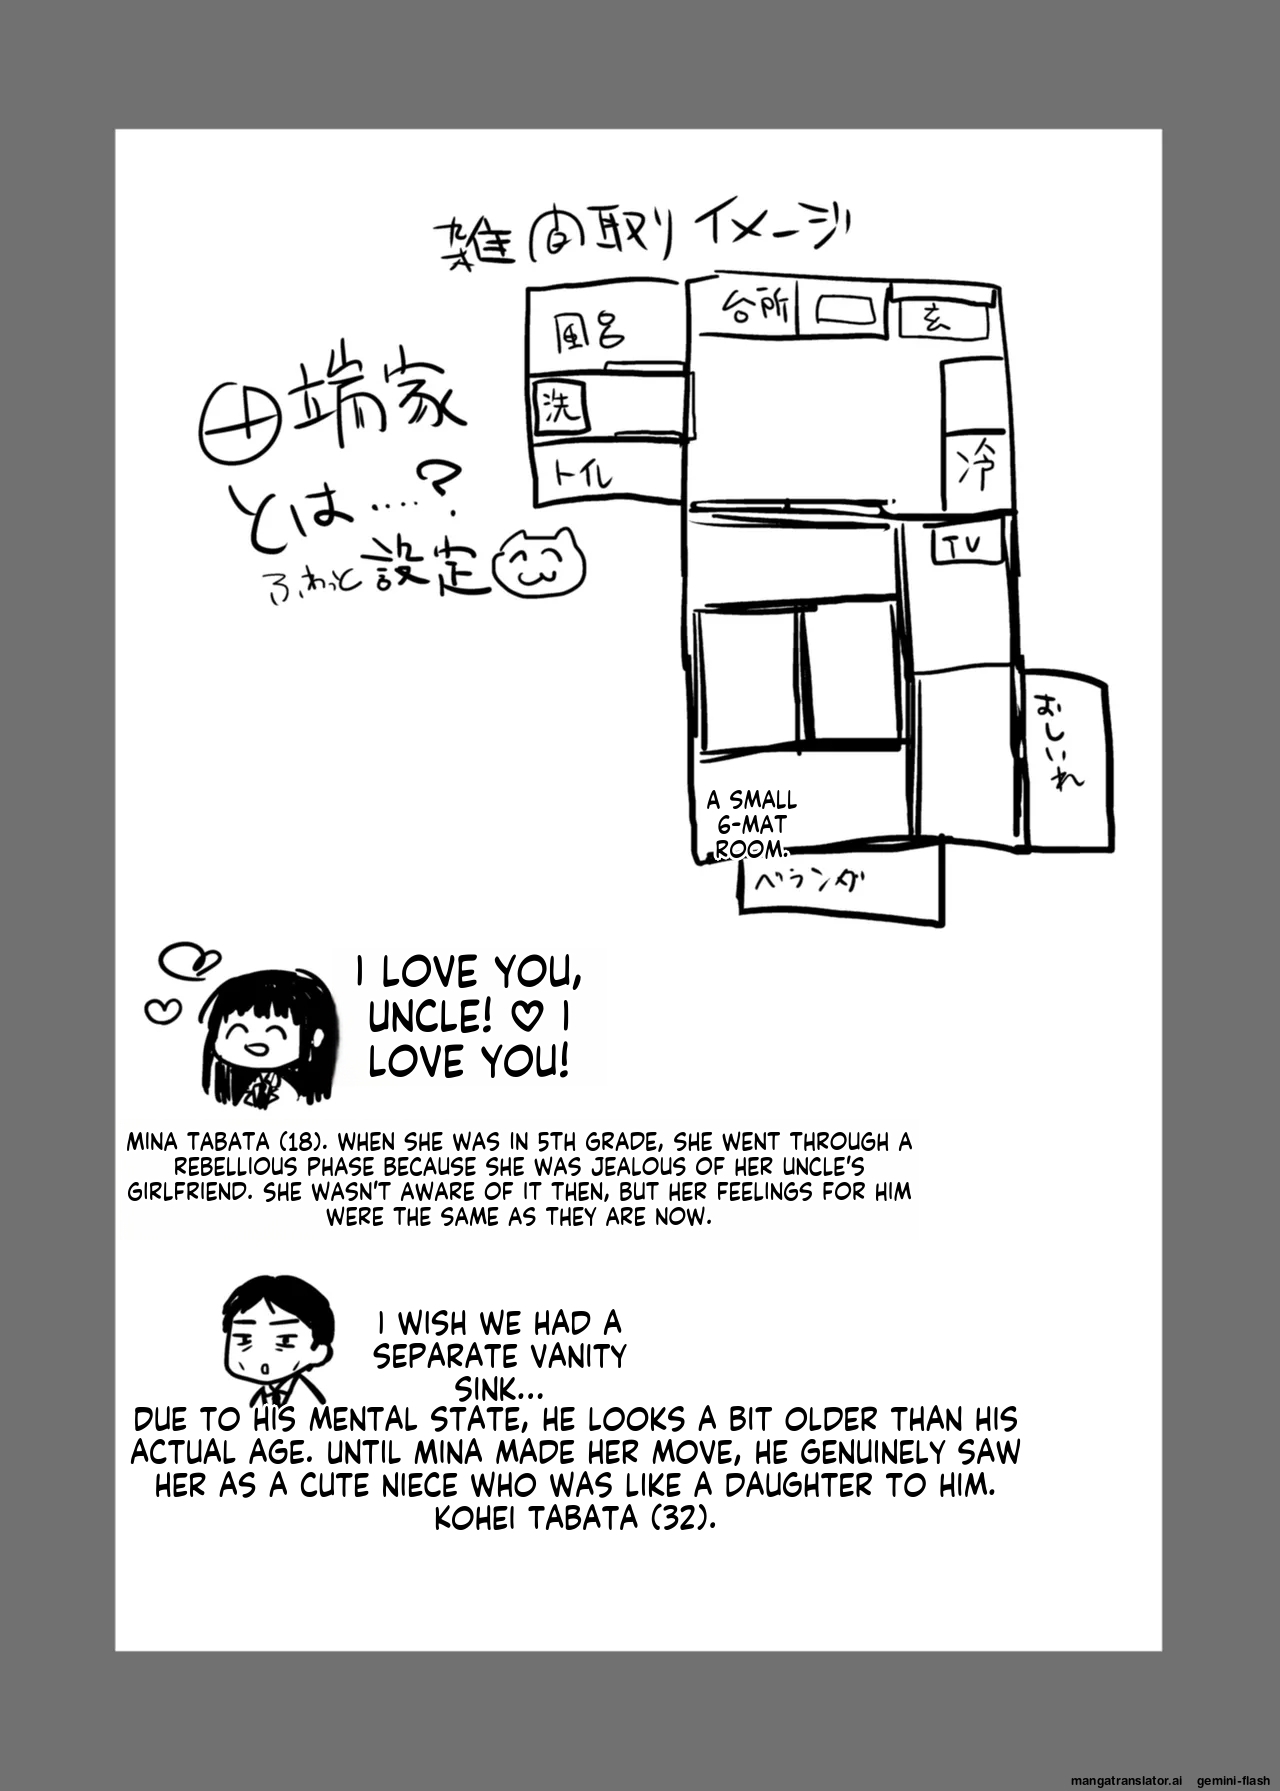 雑間取りイメージ
田端家
とは....?
ふわっと設定
風呂
洗
トイレ
台所
玄
冷
TV
おしいれ
A SMALL
6-MAT
ROOM.
ベランダ
I LOVE YOU,
UNCLE! ♡ I
LOVE YOU!
MINA TABATA (18). WHEN SHE WAS IN 5TH GRADE, SHE WENT THROUGH A
REBELLIOUS PHASE BECAUSE SHE WAS JEALOUS OF HER UNCLE'S
GIRLFRIEND. SHE WASN'T AWARE OF IT THEN, BUT HER FEELINGS FOR HIM
WERE THE SAME AS THEY ARE NOW.
I WISH WE HAD A
SEPARATE VANITY
SINK...
DUE TO HIS MENTAL STATE, HE LOOKS A BIT OLDER THAN HIS
ACTUAL AGE. UNTIL MINA MADE HER MOVE, HE GENUINELY SAW
HER AS A CUTE NIECE WHO WAS LIKE A DAUGHTER TO HIM.
KOHEI TABATA (32).
mangatranslator.ai gemini-flash